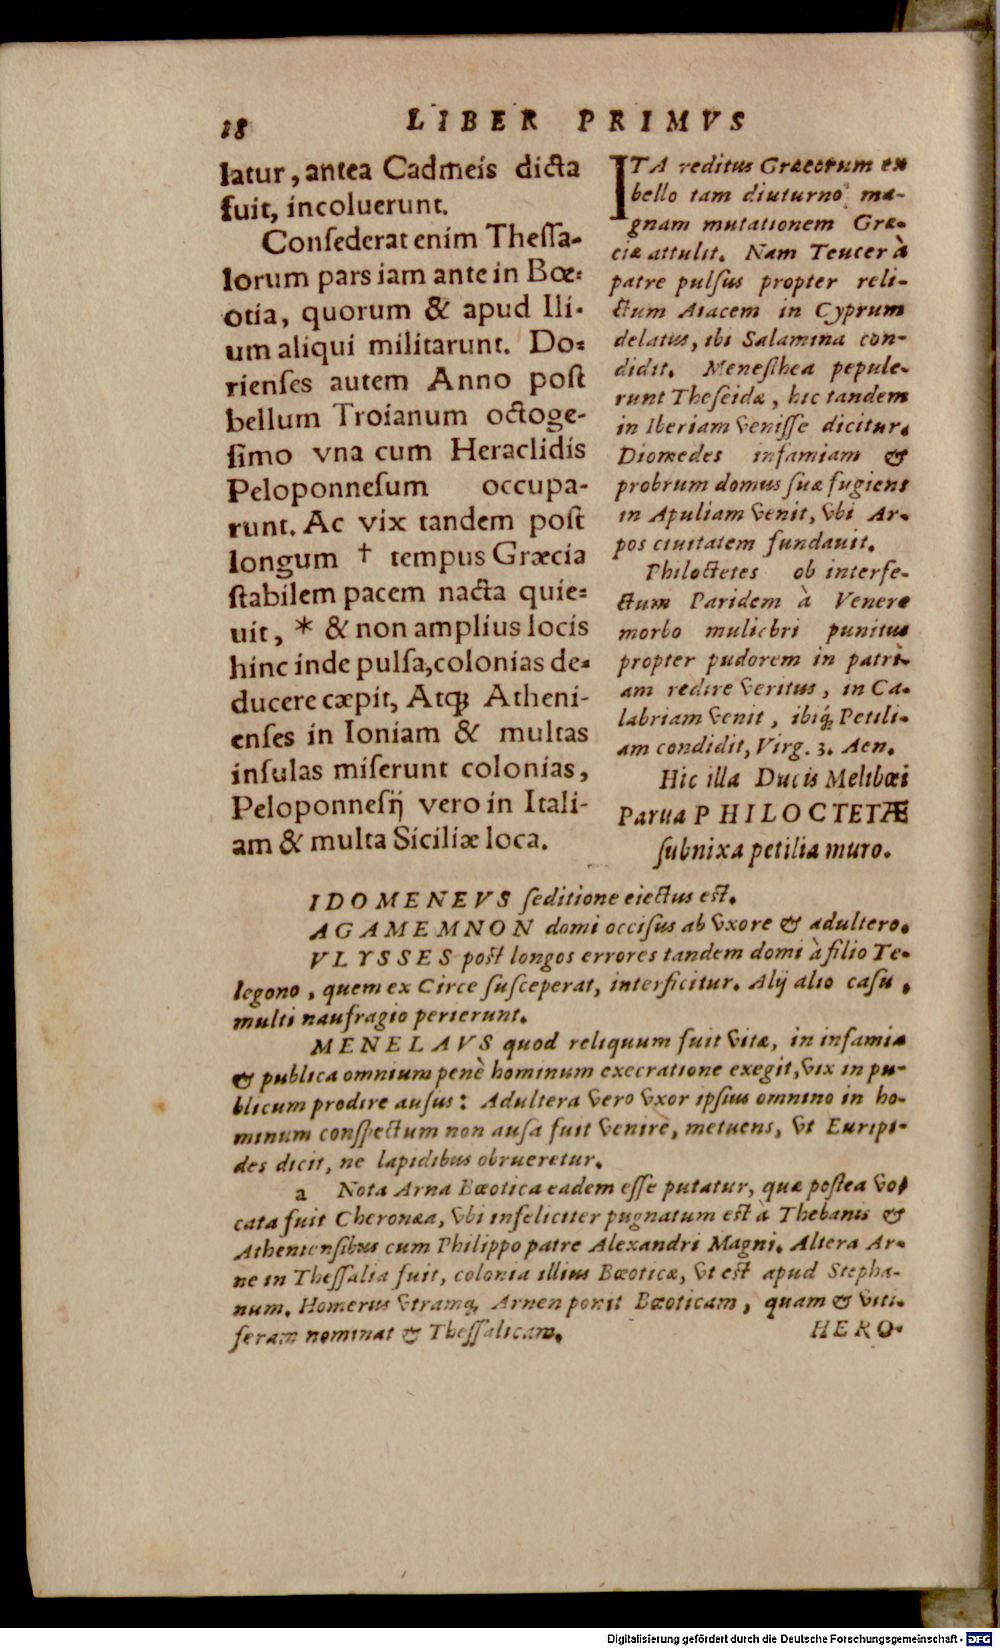 18
LIBER PRIMVS
latur, antea Cadmeis dicta
fuit, incoluerunt.
Consederat enim Thessa-
lorum pars iam ante in Bœ-
otia, quorum & apud Ili-
um aliqui militarunt. Do-
rienses autem Anno post
bellum Troianum octoge-
simo vna cum Heraclidis
Peloponnesum occupa-
runt. Ac vix tandem post
longum † tempus Græcia
stabilem pacem nacta quie-
uit, * & non amplius locis
hinc inde pulsa, colonias de-
ducere cæpit, Atq; Atheni-
enses in Ioniam & multas
insulas miserunt colonias,
Peloponnesij vero in Itali-
am & multa Siciliæ loca.
ITA reditus Græcorum ex
bello tam diuturno ma-
gnam mutationem Græ-
ciæ attulit. Nam Teucer à
patre pulsus propter reli-
ctum Aiacem in Cyprum
delatus, ibi Salamina con-
didit. Menesthea pepule-
runt Theseidæ, hic tandem
in Iberiam venisse dicitur.
Diomedes infamiam &
probrum domus suæ fugiens
in Apuliam venit, vbi Ar-
pos ciuitatem fundauit.
Philoctetes ob interfe-
ctum Paridem à Venere
morbo muliebri punitus
propter pudorem in patri-
am redire veritus, in Ca-
labriam venit, ibiq; Petili-
am condidit, Virg. 3. Aen.
Hic illa Ducis Melibœi
Parua PHILOCTETÆ
subnixa petilia muro.
IDOMENEVS seditione eiectus est.
AGAMEMNON domi occisus ab vxore & adultero.
VLYSSES post longos errores tandem domi à filio Te-
legono, quem ex Circe susceperat, interficitur. Alij alio casu,
multi naufragio perierunt.
MENELAVS quod reliquum fuit vitæ, in infamia
& publica omnium penè hominum execratione exegit, vix in pu-
blicum prodire ausus: Adultera vero vxor ipsius omnino in ho-
minum conspectum non ausa fuit venire, metuens, vt Euripi-
des dicit, ne lapidibus obrueretur.
a Nota Arna Bœotica eadem esse putatur, quæ postea vo-
cata fuit Cheronæa, vbi infeliciter pugnatum est à Thebanis &
Atheniensibus cum Philippo patre Alexandri Magni. Altera Ar-
ne in Thessalia fuit, colonia illius Bœoticæ, vt est apud Stepha-
num. Homerus vtramq; Arnen ponit Bœoticam, quam & viti-
feram nominat & Thessalicam.
HERO-
Digitalisierung gefördert durch die Deutsche Forschungsgemeinschaft - DFG